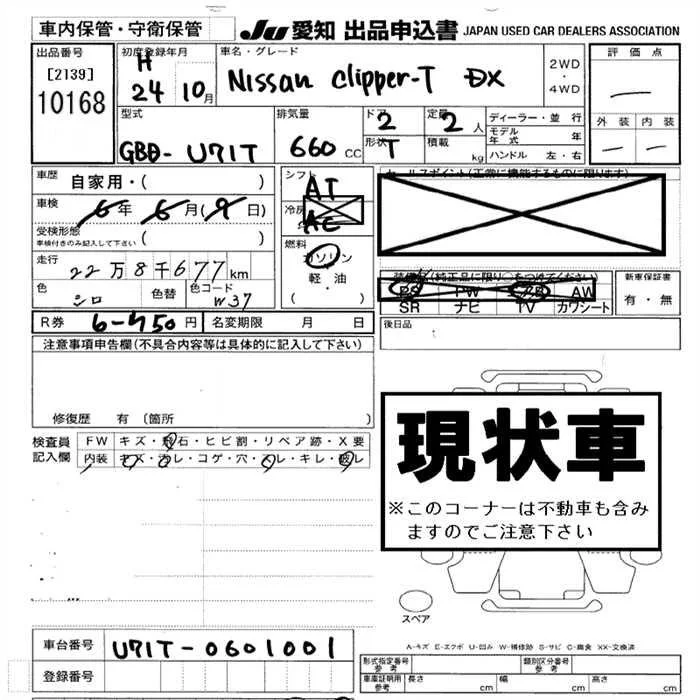 車内保管・守衛保管 JU 愛知 出品申込書 JAPAN USED CAR DEALERS ASSOCIATION
出品番号 初度登録年月 車名・グレード 評価点
[2139] H
10168 24 10月 Nissan Clipper-T DX 2WD・4WD
型式 排気量 ドア 2 定員 2人 ディーラー・並行 外装 内装
GBD-U71T 660CC 形状 T 積載 kg モデル年式 年
ハンドル 左・右
車歴 自家用・( ) シフト AT セールスポイント(正常に機能するものに限ります)
車検 6年 6月(9日) 冷房 AC
受検形態 ( )
車検付きのみ記入して下さい
燃料
ガソリン
軽・油
(・)
走行 22万8千677km
装備(純正品に限り○をつけてください) 新車保証書
色 シロ 色替 色コード W37
PS PW AW 有・無
SR ナビ TV カワシート
R券 6-750円 名変期限 月 日 後日品
注意事項申告欄(不具合内容等は具体的に記入して下さい)
修復歴 有 (箇所 )
検査員記入欄 FW キズ・飛石・ヒビ割・リペア跡・X要
内装 キズ・汚レ・コゲ・穴・スレ・キレ・破レ
現状車
※このコーナーは不動車も含み
ますのでご注意下さい
スペア
A-キズ E-エクボ U-凹み W-補修跡 S-サビ C-腐食 XX-交換済
車台番号 U71T-0601001
登録番号
形式指定番号 参考 類別区分番号 参考
車庫証明用 参考 長さ cm 幅 cm 高さ cm